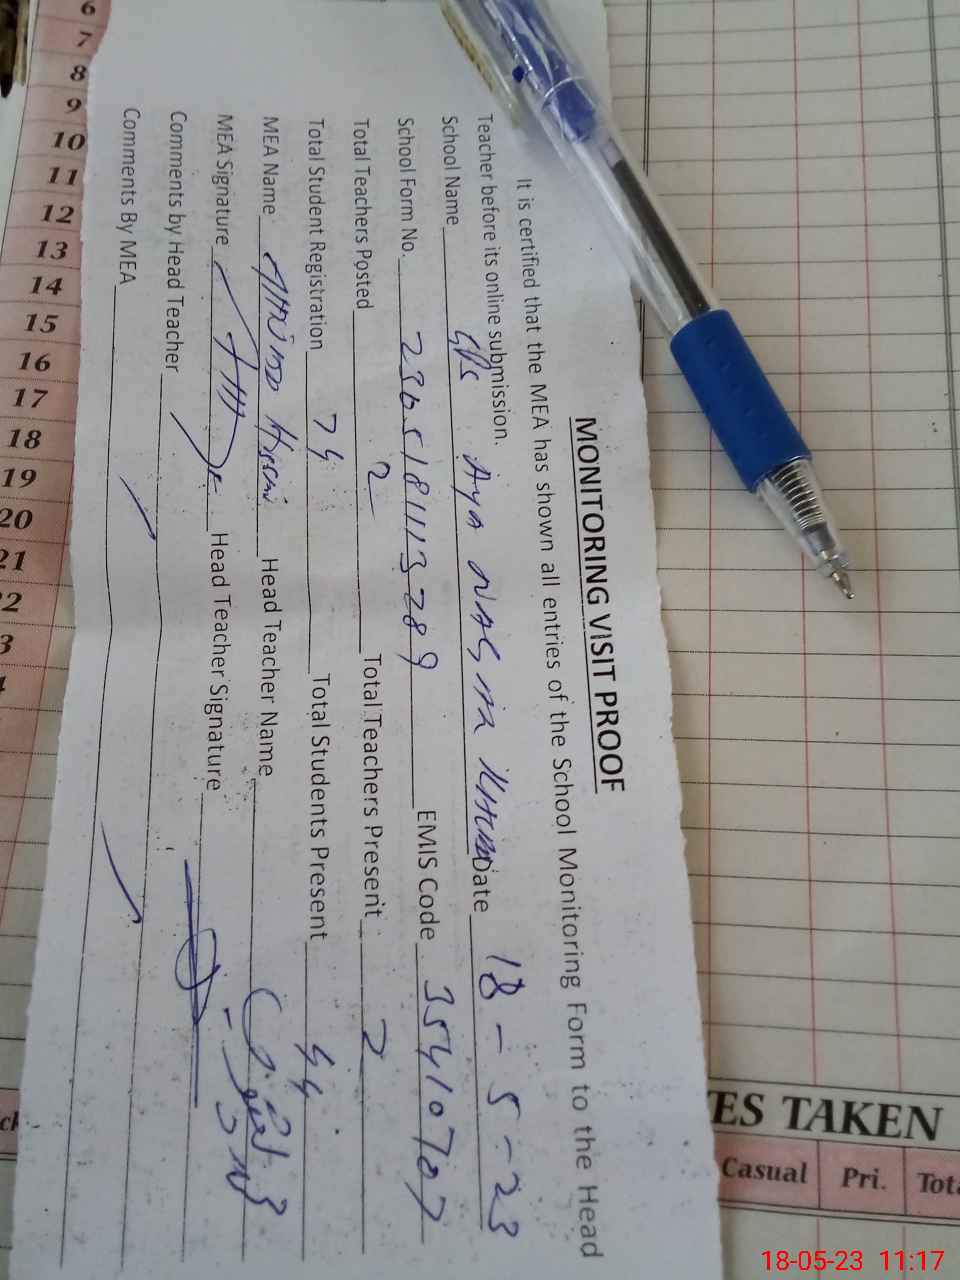 MONITORING VISIT PROOF
It is certified that the MEA has shown all entries of the School Monitoring Form to the Head
Teacher before its online submission.
School Name GPS Aya NAGAR Date 18-5-23
School Form No. 2305181113289 EMIS Code 35410707
Total Teachers Posted 2 Total Teachers Present 2
Total Student Registration 74 Total Students Present 44
MEA Name Head Teacher Name
MEA Signature Head Teacher Signature
Comments by Head Teacher
Comments By MEA
6
7
8
9
10
11
12
13
14
15
16
17
18
19
20
21
ES TAKEN
Casual Pri. Tota
18-05-23 11:17